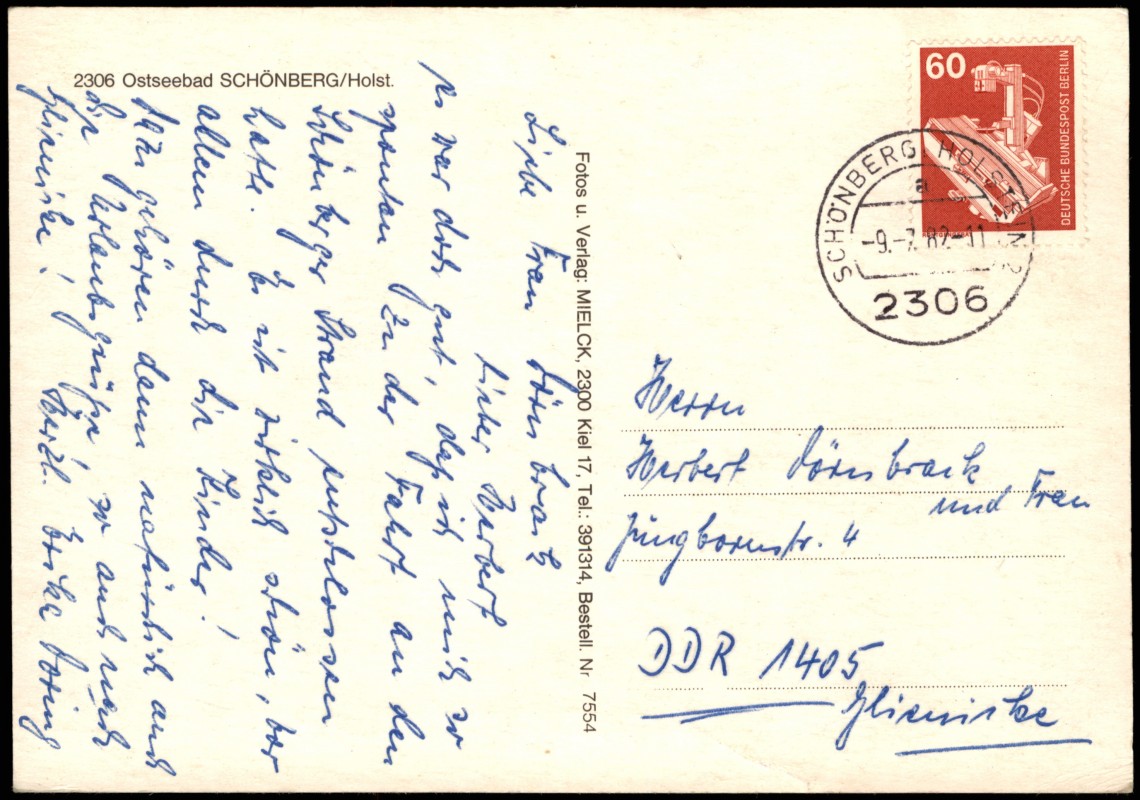 2306 Ostseebad SCHÖNBERG/Holst.
Liebe Frau Dörnbrack
Lieber Herbert
es war doch gut, daß ich mich so
spontan zu der Fahrt an den
Schönberger Strand entschlossen
hatte. Es ist wirklich schön, vor
allem durch die Kinder!
Dazu gehören dann natürlich auch
die Urlaubsgrüße so auch nach
Glienicke! Herzl. Erika
Fotos u. Verlag: MIELCK, 2300 Kiel 17, Tel.: 391314, Bestell. Nr 7554
60
DEUTSCHE BUNDESPOST BERLIN
SCHÖNBERG, HOLSTEIN
a
-9.-7.82-11
2306
Herrn
Herbert Dörnbrack
und Frau
Jungbornstr. 4
DDR 1405
Glienicke